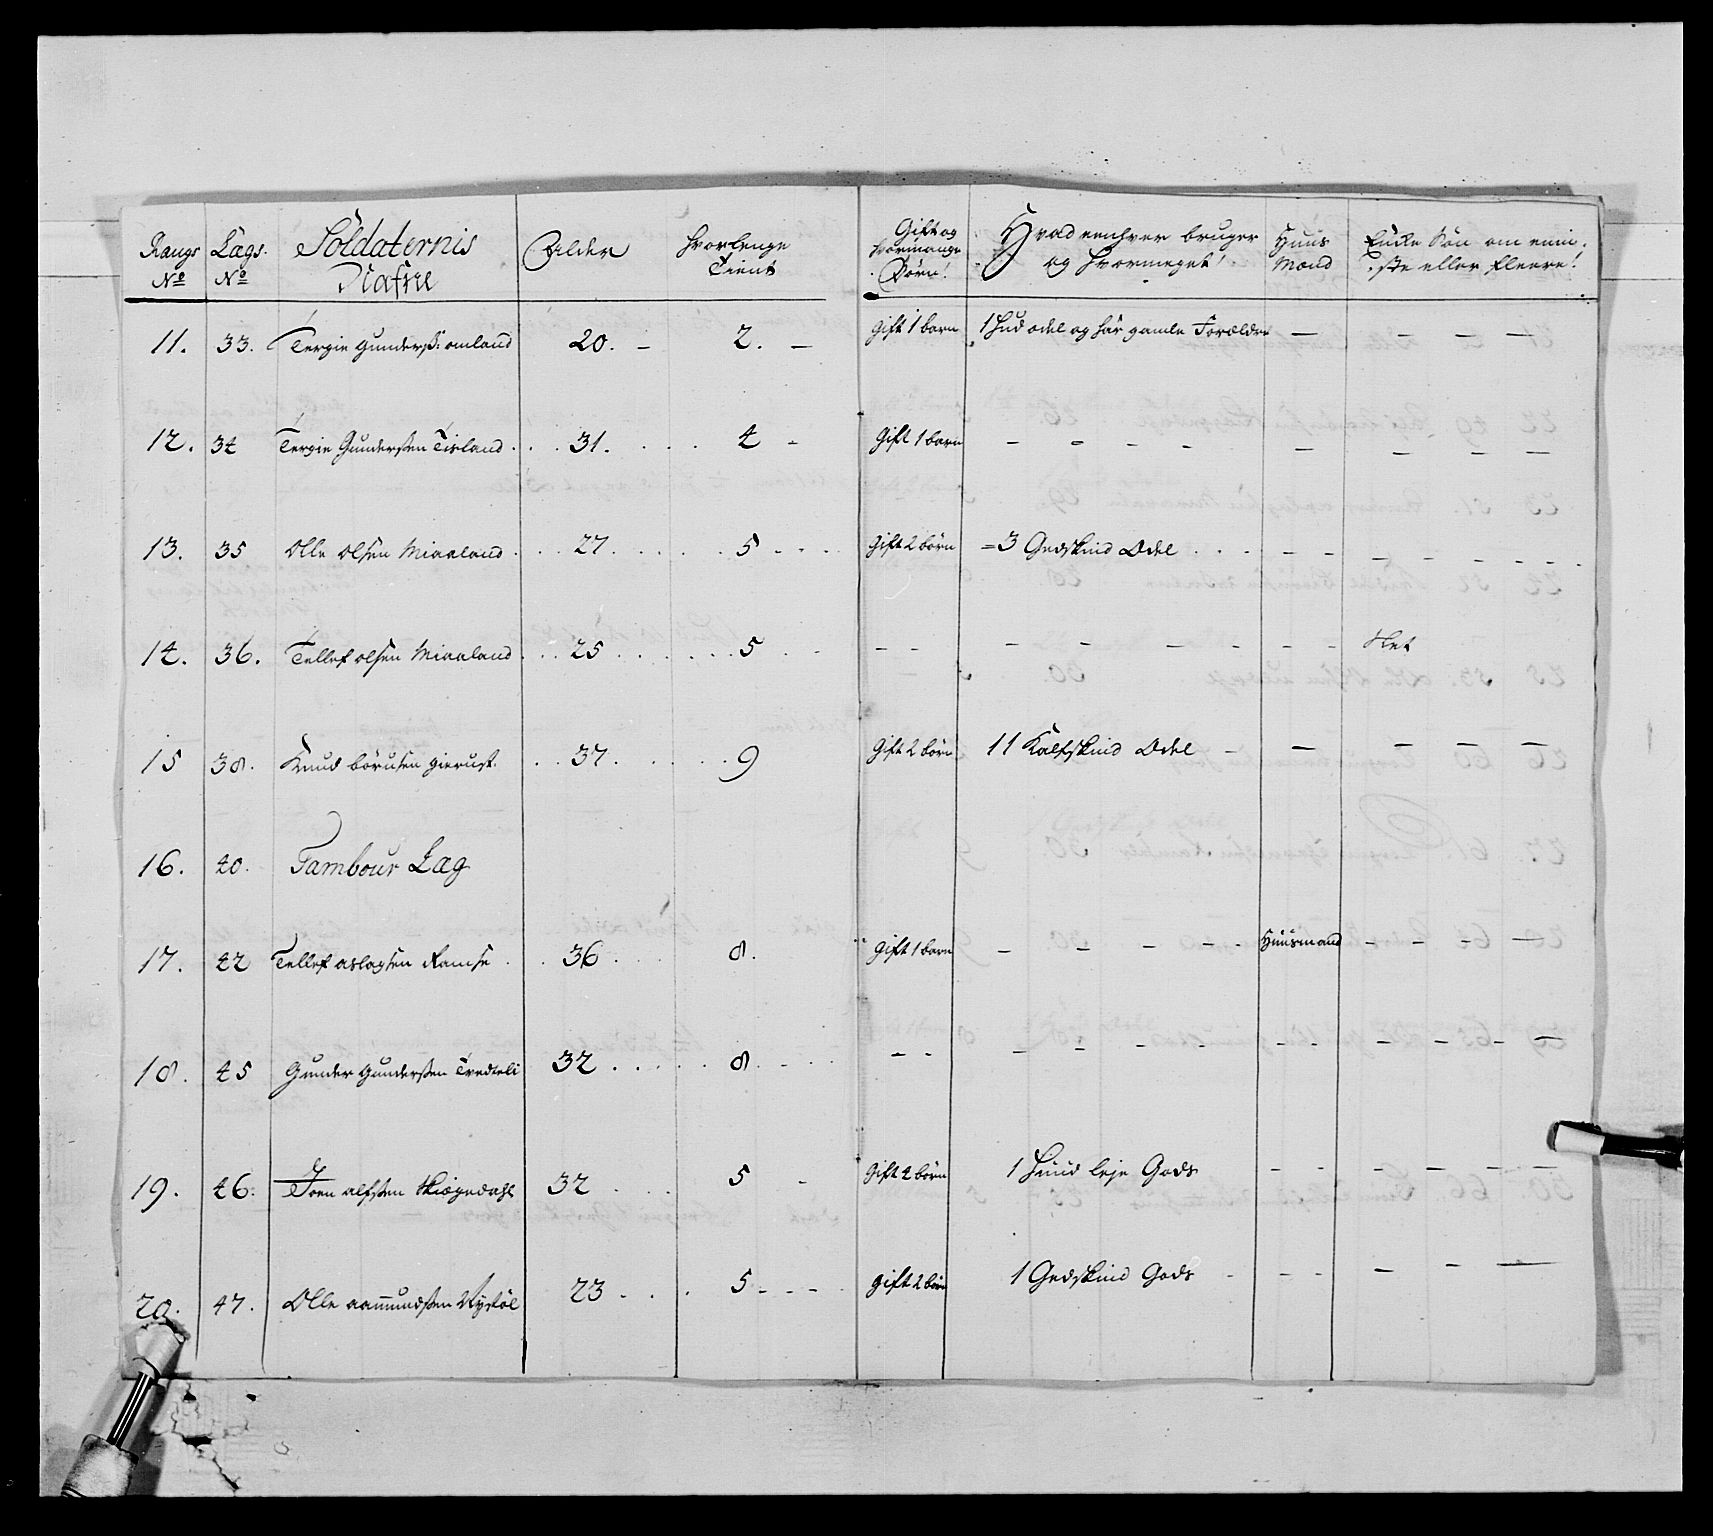 Rangs No | Lægs No | Soldaternis Nafne | Alder | hvorlenge Tient | Gift og hvormange Børn! | Hvad eenhver bruger og hvormeget! | Huus Mænd | Encke Søn om enii- ste eller fleere!
11. | 33. | Tergie Gunderss: omland | 20. – | 2. – | Gift 1 barn | 1 hud odel og har gamle Forældre | – | – – –
12. | 34 | Tergie Gunderssen Tisland | 31. | 4 – | Gift 1 barn | – – – – | – | – – –
13. | 35 | Olle Olsen Miaaland | 27. | 5 | Gift 2 børn | = 3 Gedskind Odel | – – | – – – –
14. | 36. | Tellef olsen Miaaland | 25 | 5 | – – | – – – – | – – |
15 | 38. | Knud börusen gierust. | 37. | 9 | Gift 2 børn | 11 Kalfskind Odel – | – | – – –
16. | 40. | Tambour Læg
17. | 42 | Tellef aslagsen Ramse | 36 | 8. | Gift 1 barn | – – – – | Huusmand | – – – –
18. | 45 | Gunder Gunderssen Tvedteli | 32 | 8. | – – | – – – – | – – | – – – –
19. | 46. | Joen alfssen Skiægedahl | 32 | 5 – | Gift 2 børn | 1 huud leje Gods | – – | – – – –
20. | 47. | Olle aamundssen Nystöl | 23 | 5 | Gift 2 børn | 1 Gedskind Gods – | – – | – – –